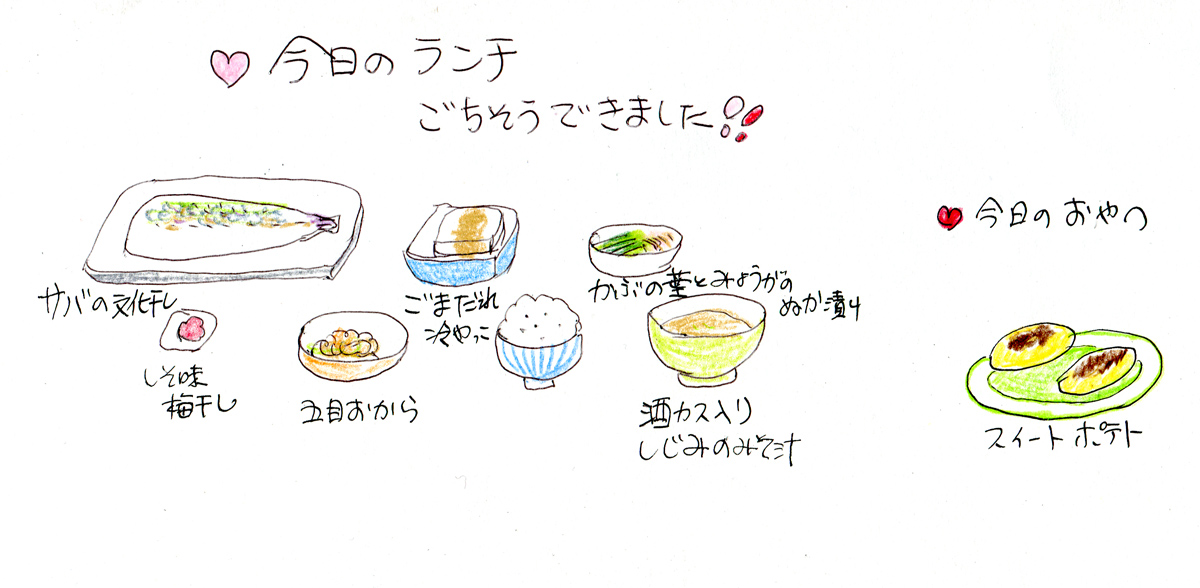 今日のランチ
ごちそうできました!!
サバの文化干し
ごまだれ
冷やっこ
かぶの葉とみょうがの
ぬか漬け
しそ味
梅干し
五目おから
酒カス入り
しじみのみそ汁
今日のおやつ
スイートポテト